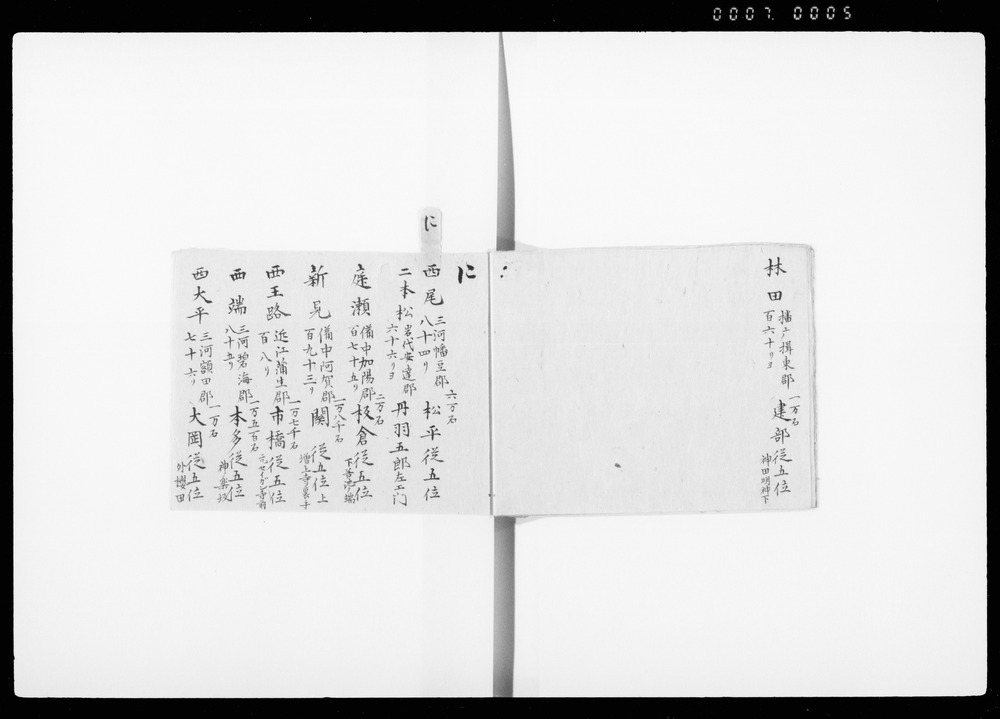 0007 0005
林田
播广揖東郡
百六十リヨ
一万石
建部従五位
神田明神下
に
に
西尾
三河幡豆郡
八十四リ
六万石
松平従五位
二本松
岩代安達郡
六十六リヨ
丹羽五郎左エ门
庭瀬
備中加陽郡
百七十五リ
二万石
板倉従五位
新見
備中阿賀郡
百九十三リ
一万八千石
関従五位上
増上寺裏手
西王路
近江蒲生郡
百八リ
一万七千石
市橋従五位
西端
三河碧海郡
八十五リ
一万五百石
本多従五位
神楽坂
西大平
三河額田郡
七十六リ
一万石
大岡従五位
外櫻田